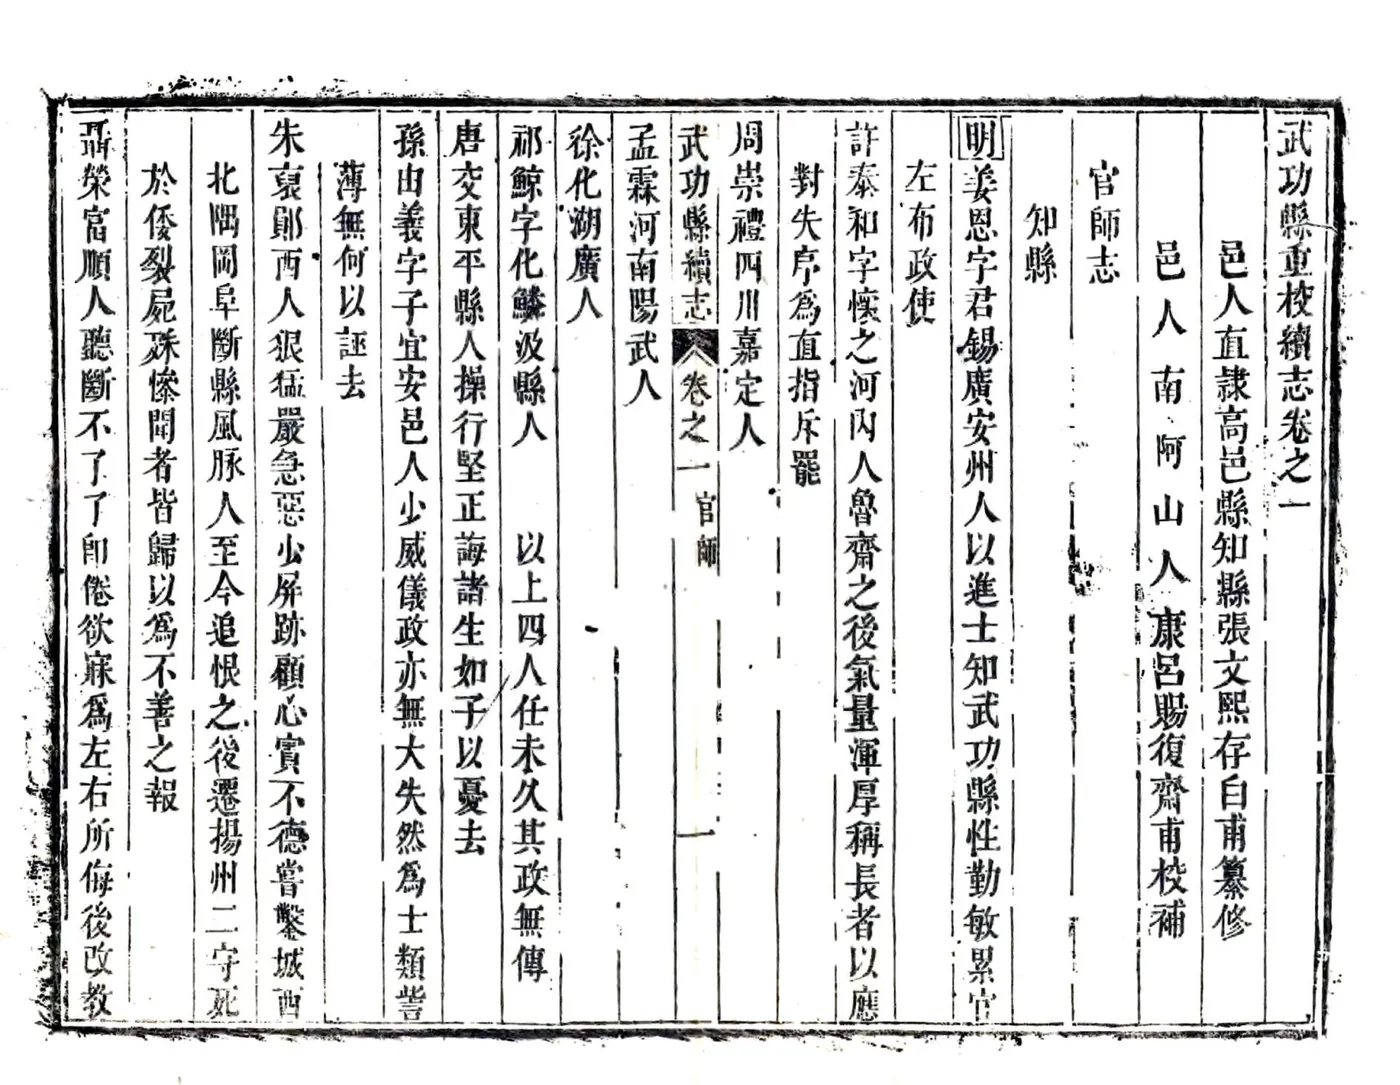 武功縣重校續志卷之一
邑人直隸高邑縣知縣張文熙存白甫纂修
邑人南阿山人康呂賜復齋甫校補
官師志
知縣
明姜恩字君錫廣安州人以進士知武功縣性勤敏累官
左布政使
許泰和字懷之河內人魯齋之後氣量渾厚稱長者以應
對失序為直指斥罷
周崇禮四川嘉定人
武功縣續志 卷之一 官師 一
孟霖河南陽武人
徐化湖廣人
祁鯨字化鱗汲縣人 以上四人任未久其政無傳
唐交東平縣人操行堅正誨諸生如子以憂去
孫由義字子宜安邑人少威儀政亦無大失然為士類訾
薄無何以誣去
朱裒鄖西人狠猛嚴急惡少屏跡顧心實不德嘗鑿城西
北隅岡阜斷縣風脉人至今追恨之後遷揚州二守死
於倭裂屍殊慘聞者皆歸以為不善之報
聶榮富順人聽斷不了了即倦欲寐為左右所侮後改教